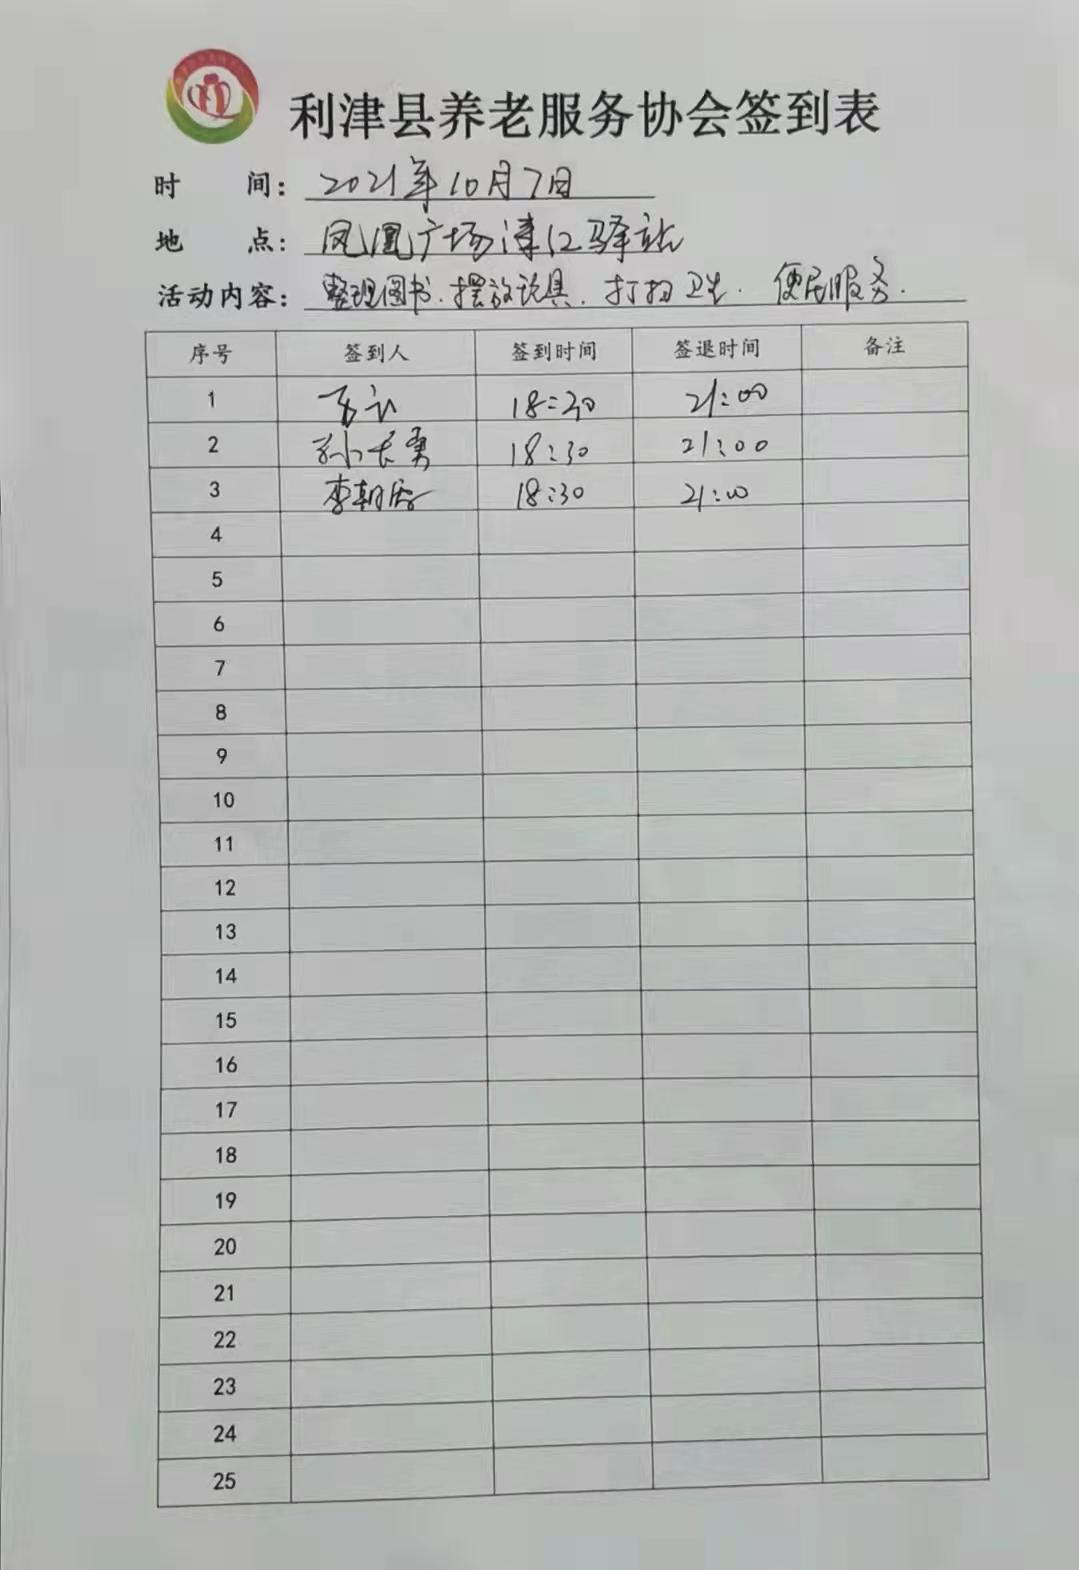 利津县养老服务协会签到表
时 间: 2021年10月7日
地 点: 凤凰广场津江驿站
活动内容: 整理图书.摆放玩具.打扫卫生.便民服务.
序号 签到人 签到时间 签退时间 备注
1 18:30 21:00
2 孙长勇 18:30 21:00
3 李朝霞 18:30 21:00
4
5
6
7
8
9
10
11
12
13
14
15
16
17
18
19
20
21
22
23
24
25